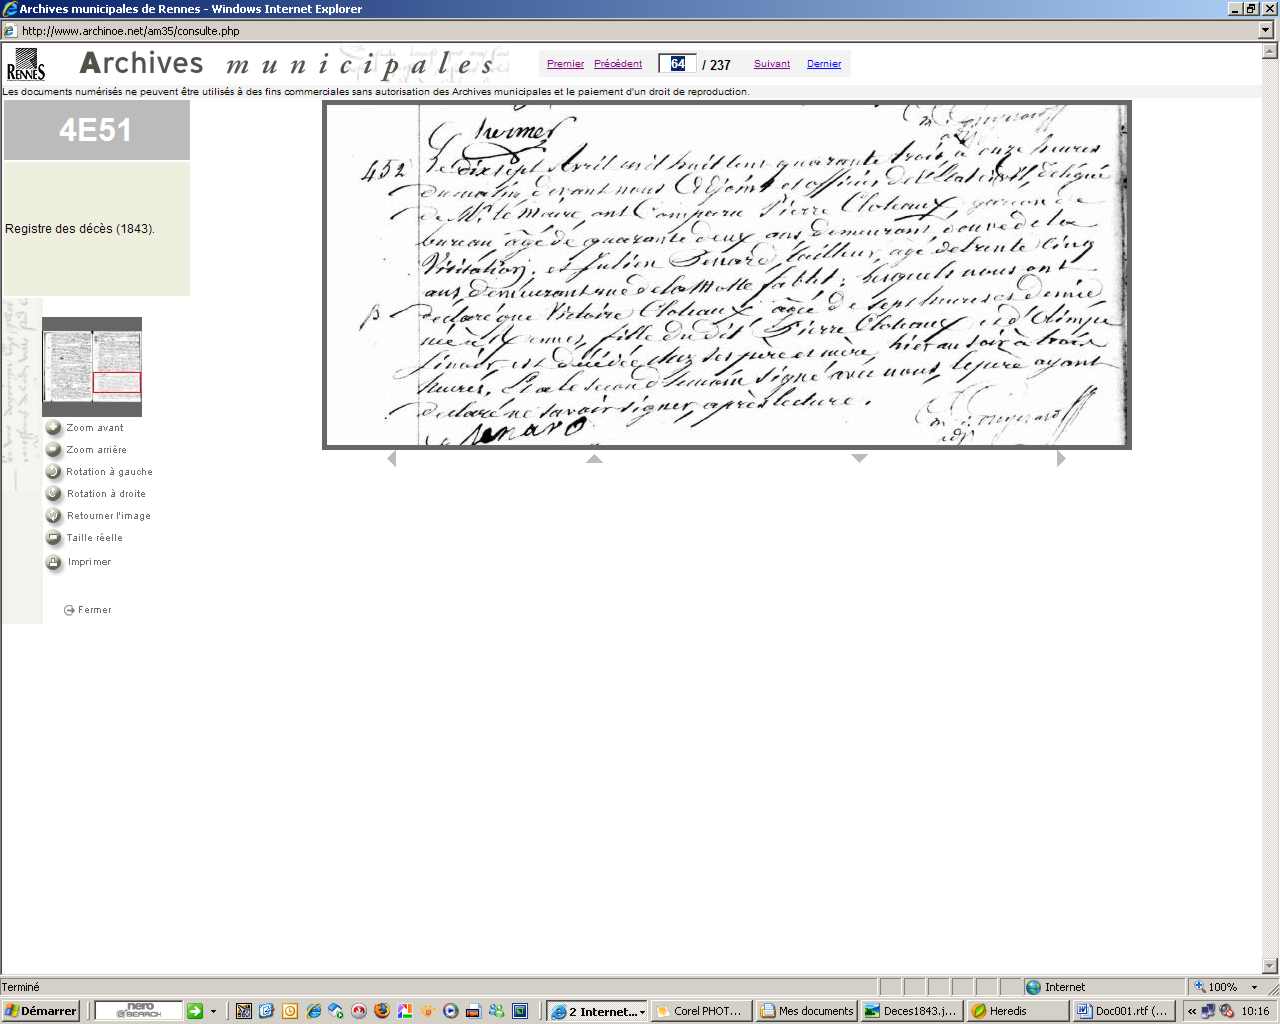 Archives municipales de Rennes - Windows Internet Explorer
http://www.archinoe.net/am35/consulte.php
RENNES
Archives municipales
Premier Précédent 64 / 237 Suivant Dernier
Les documents numérisés ne peuvent être utilisés à des fins commerciales sans autorisation des Archives municipales et le paiement d'un droit de reproduction.
4E51
Registre des décès (1843).
452
Le dix sept Avril mil huit cent quarante trois, à onze heures
du matin, devant nous Adjoint et officier de l'Etat civil, délégué
de Mr. le Maire, ont Comparu Pierre Cloteaux, garçon de
bureau, âgé de quarante deux ans, demeurant, douve de la
Visitation, et Julien Senard, tailleur, âgé de trente Cinq
ans, demeurant rue de la Motte fablet; lesquels nous ont
déclaré que Victoire Cloteaux, âgée de sept heures et demie
née à Rennes, fille du dit Pierre Cloteaux et d'Olimpe
est décédée chez ses père et mère, hier au soir à trois
heures, Et a le second témoin signé avec nous, le père ayant
déclaré ne savoir signer, après lecture.
Senard
Zoom avant
Zoom arrière
Rotation à gauche
Rotation à droite
Retourner l'image
Taille réelle
Imprimer
Fermer
Terminé
Internet
100%
Démarrer
nero
SEARCH
2 Internet...
Corel PHOT...
Mes documents
Deces1843.j...
Heredis
Doc001.rtf (...
10:16